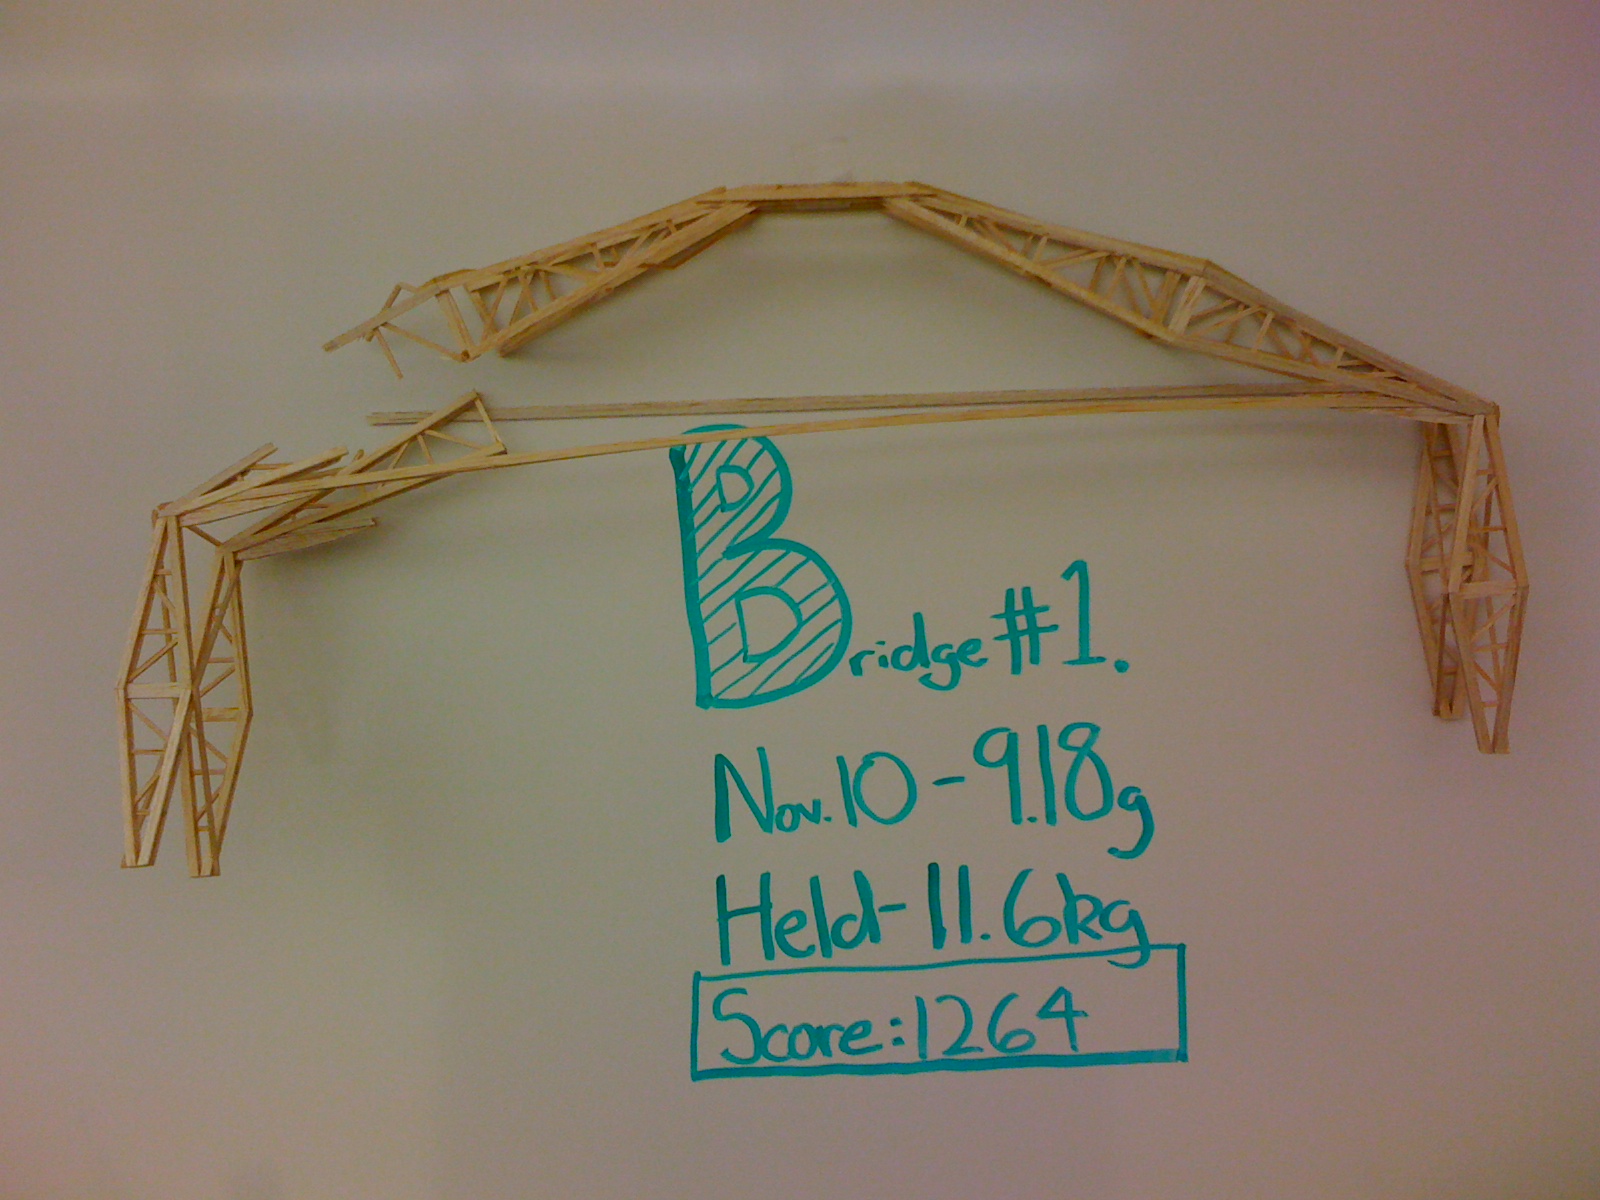 Bridge #1.
Nov. 10 - 9.18g
Held - 11.6kg
Score: 1264